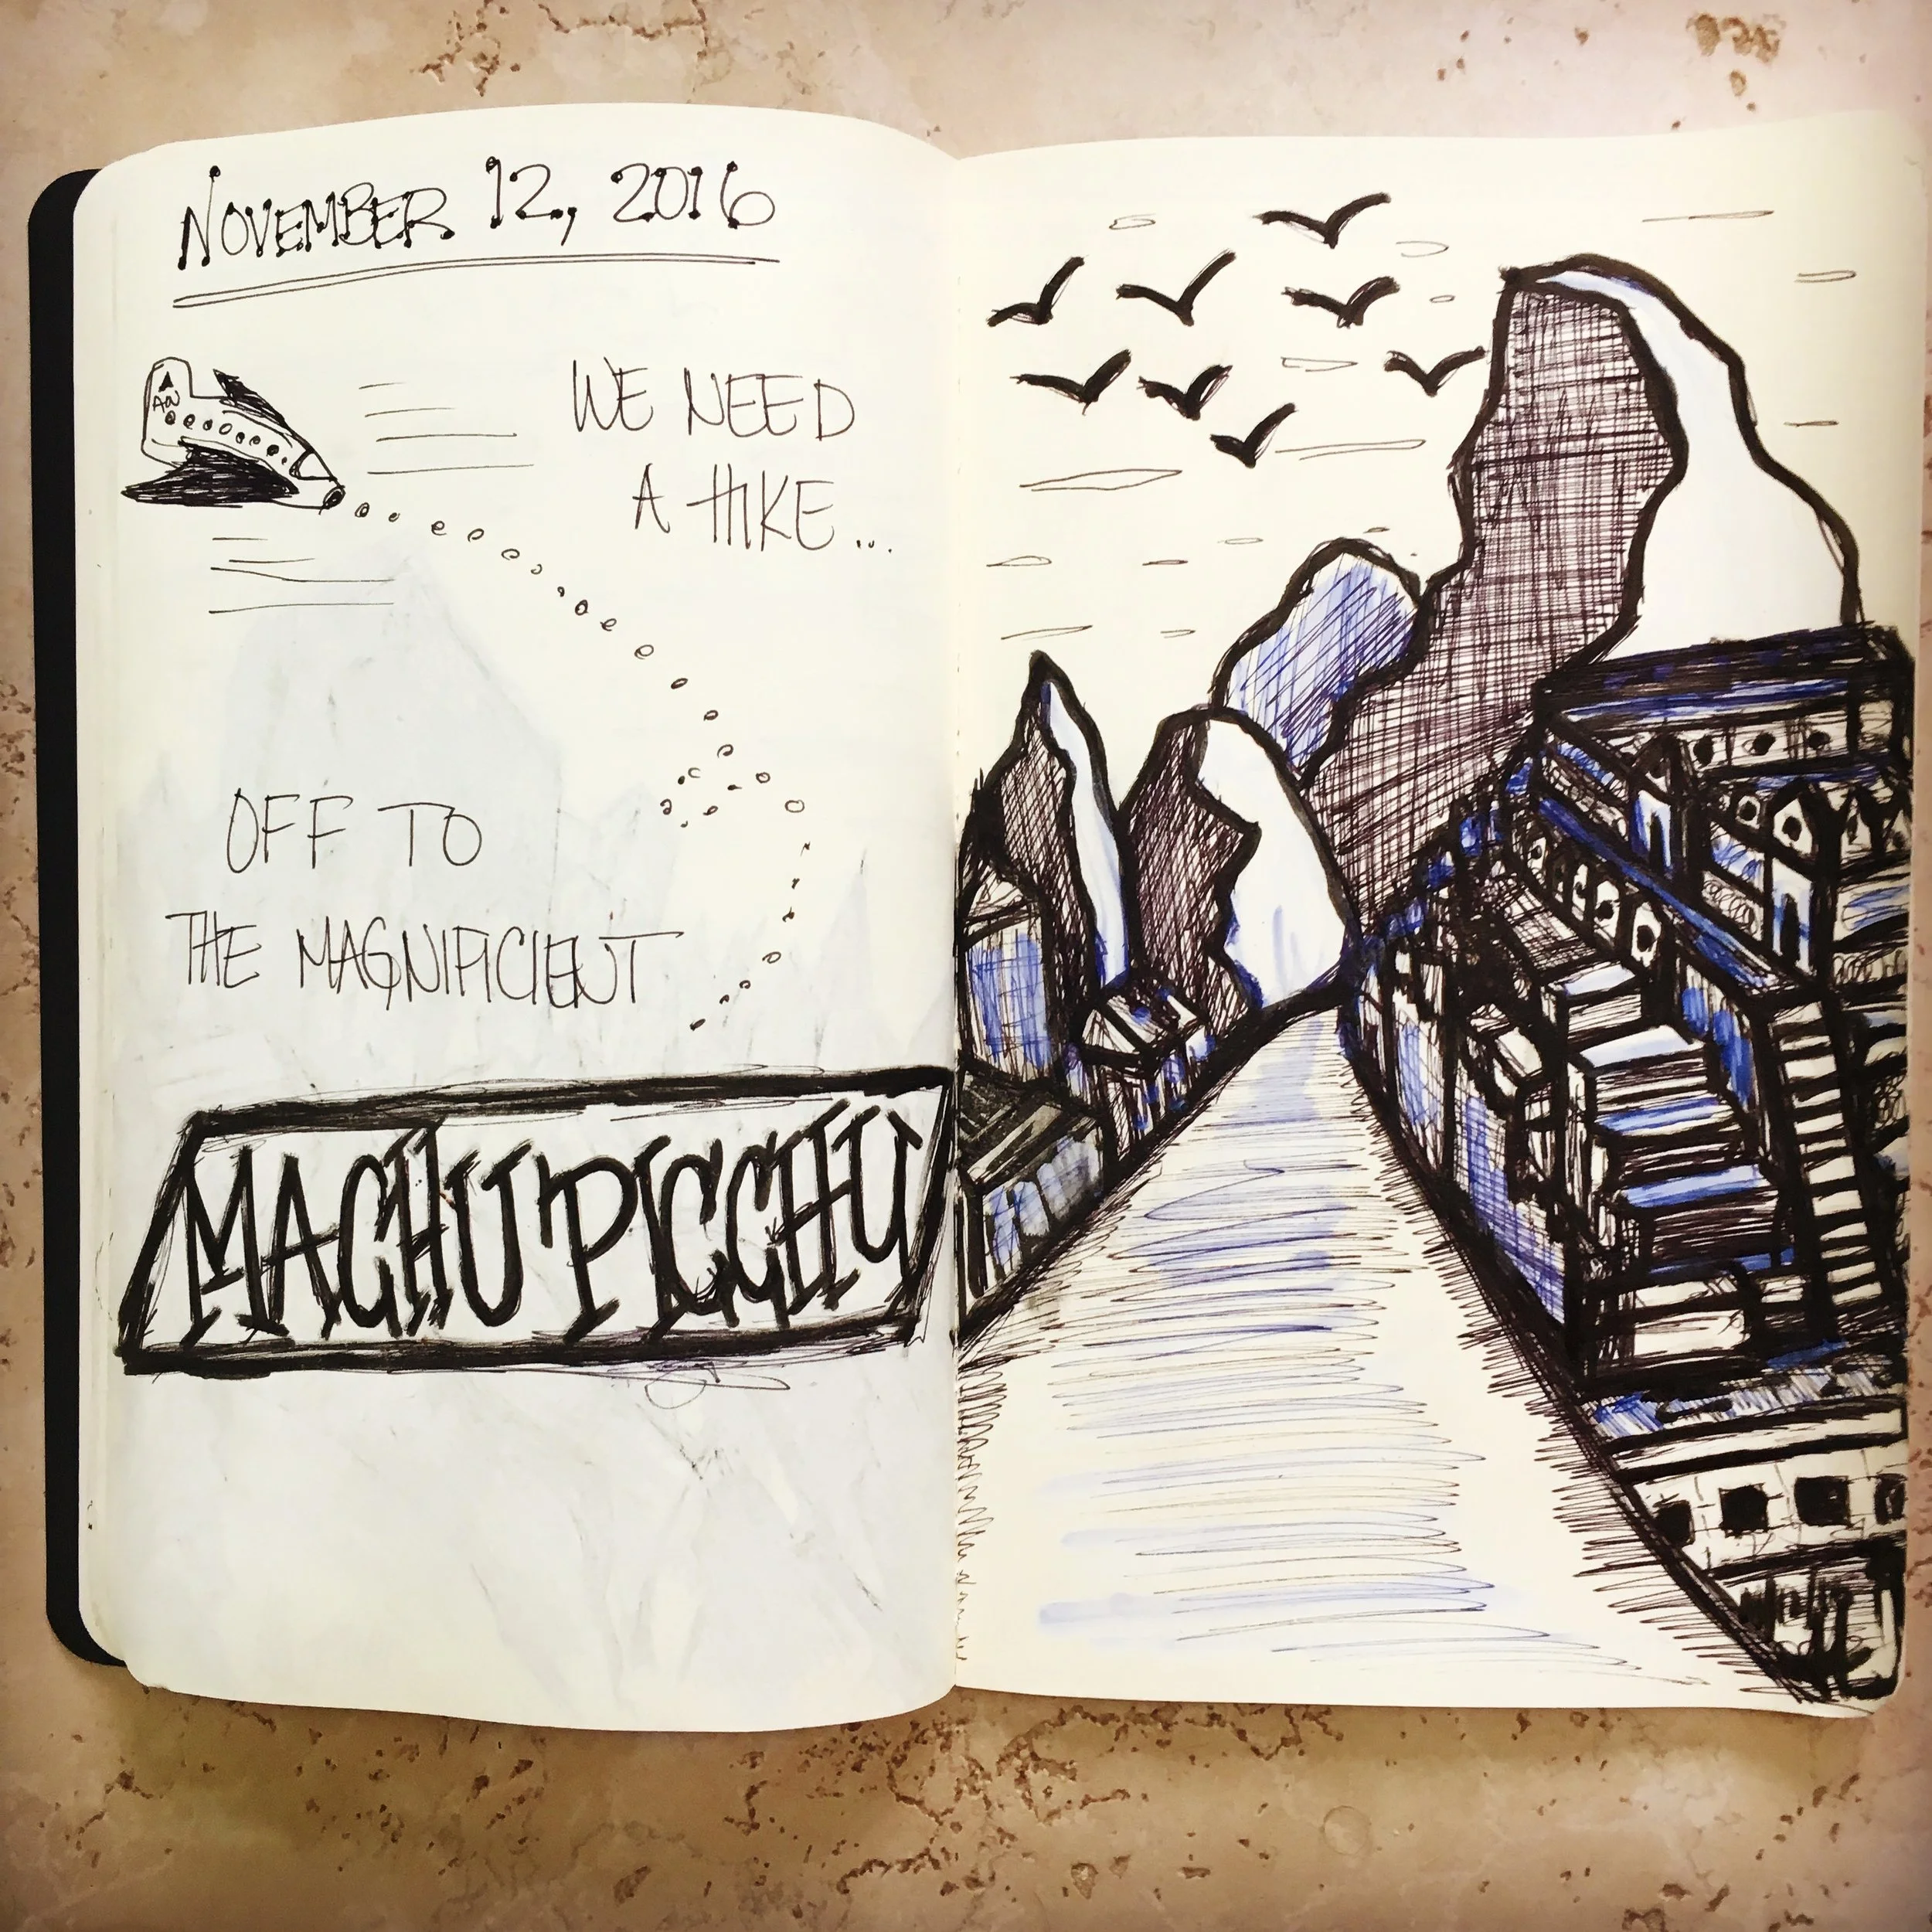 NOVEMBER 12, 2016
WE NEED
A HIKE...
OFF TO
THE MAGNIFICIENT
MACHU PICCHU